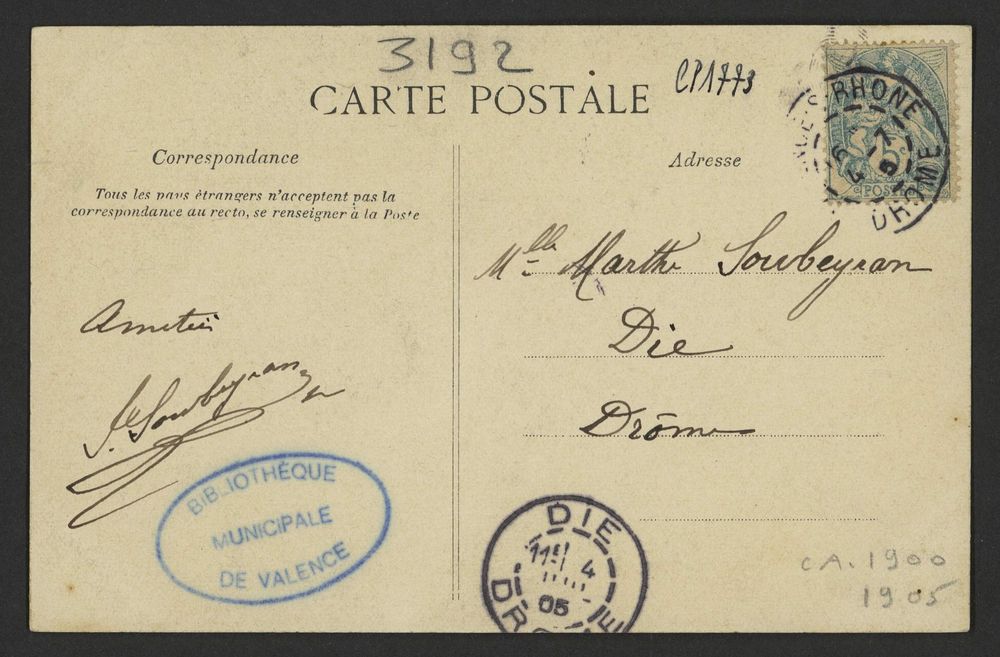 3192
CP1773
CARTE POSTALE
Correspondance
Tous les pays étrangers n'acceptent pas la
correspondance au recto, se renseigner à la Poste
Adresse
S-RHONE
DROME
POSTE
Mlle Marthe Soubeyran
Die
Drôme
Amitiés
Soubeyran
BIBLIOTHÈQUE
MUNICIPALE
DE VALENCE
DIE
4
05
DROME
CA. 1900
1905